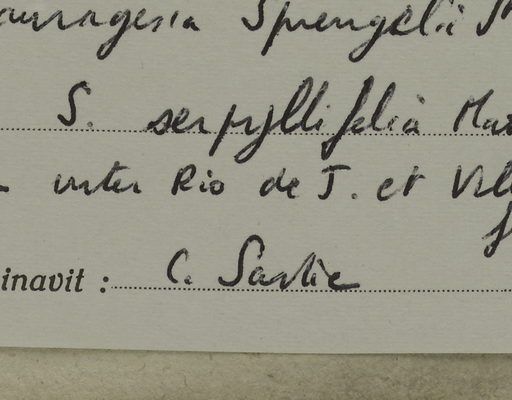 auvagesia Sprengelii
S. serpyllifolia Mar
inter Rio de J. et Vil
inavit : C. Sastre